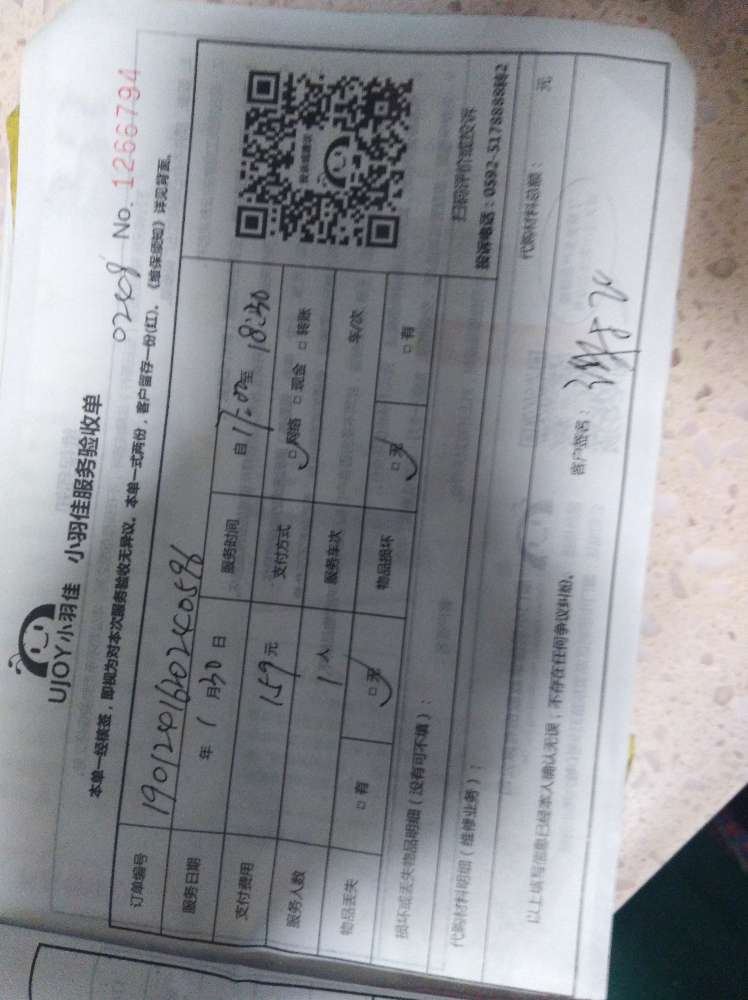 UJOY小羽佳 小羽佳服务验收单
0248 No. 1266794
本单一经核签，即视为对本次服务验收无异议。本单一式两份，客户留存一份(红)。《维保须知》详见背面。
订单编号 1901241620240596
服务日期 年 1 月 30 日 服务时间 自 17:00 至 18:30
支付费用 159 元 支付方式 □ 网络 □ 现金 □ 转账
服务人数 1 人 服务车次 车/次
物品丢失 □ 有 □ 无 物品损坏 □ 无 □ 有
扫码评价或投诉
投诉电话：0592-5178888转2
损坏或丢失物品明细（没有可不填）：
代购材料明细（维修业务）： 代购材料总额： 元
以上填写信息已经本人确认无误，不存在任何争议纠纷。 客户签名：